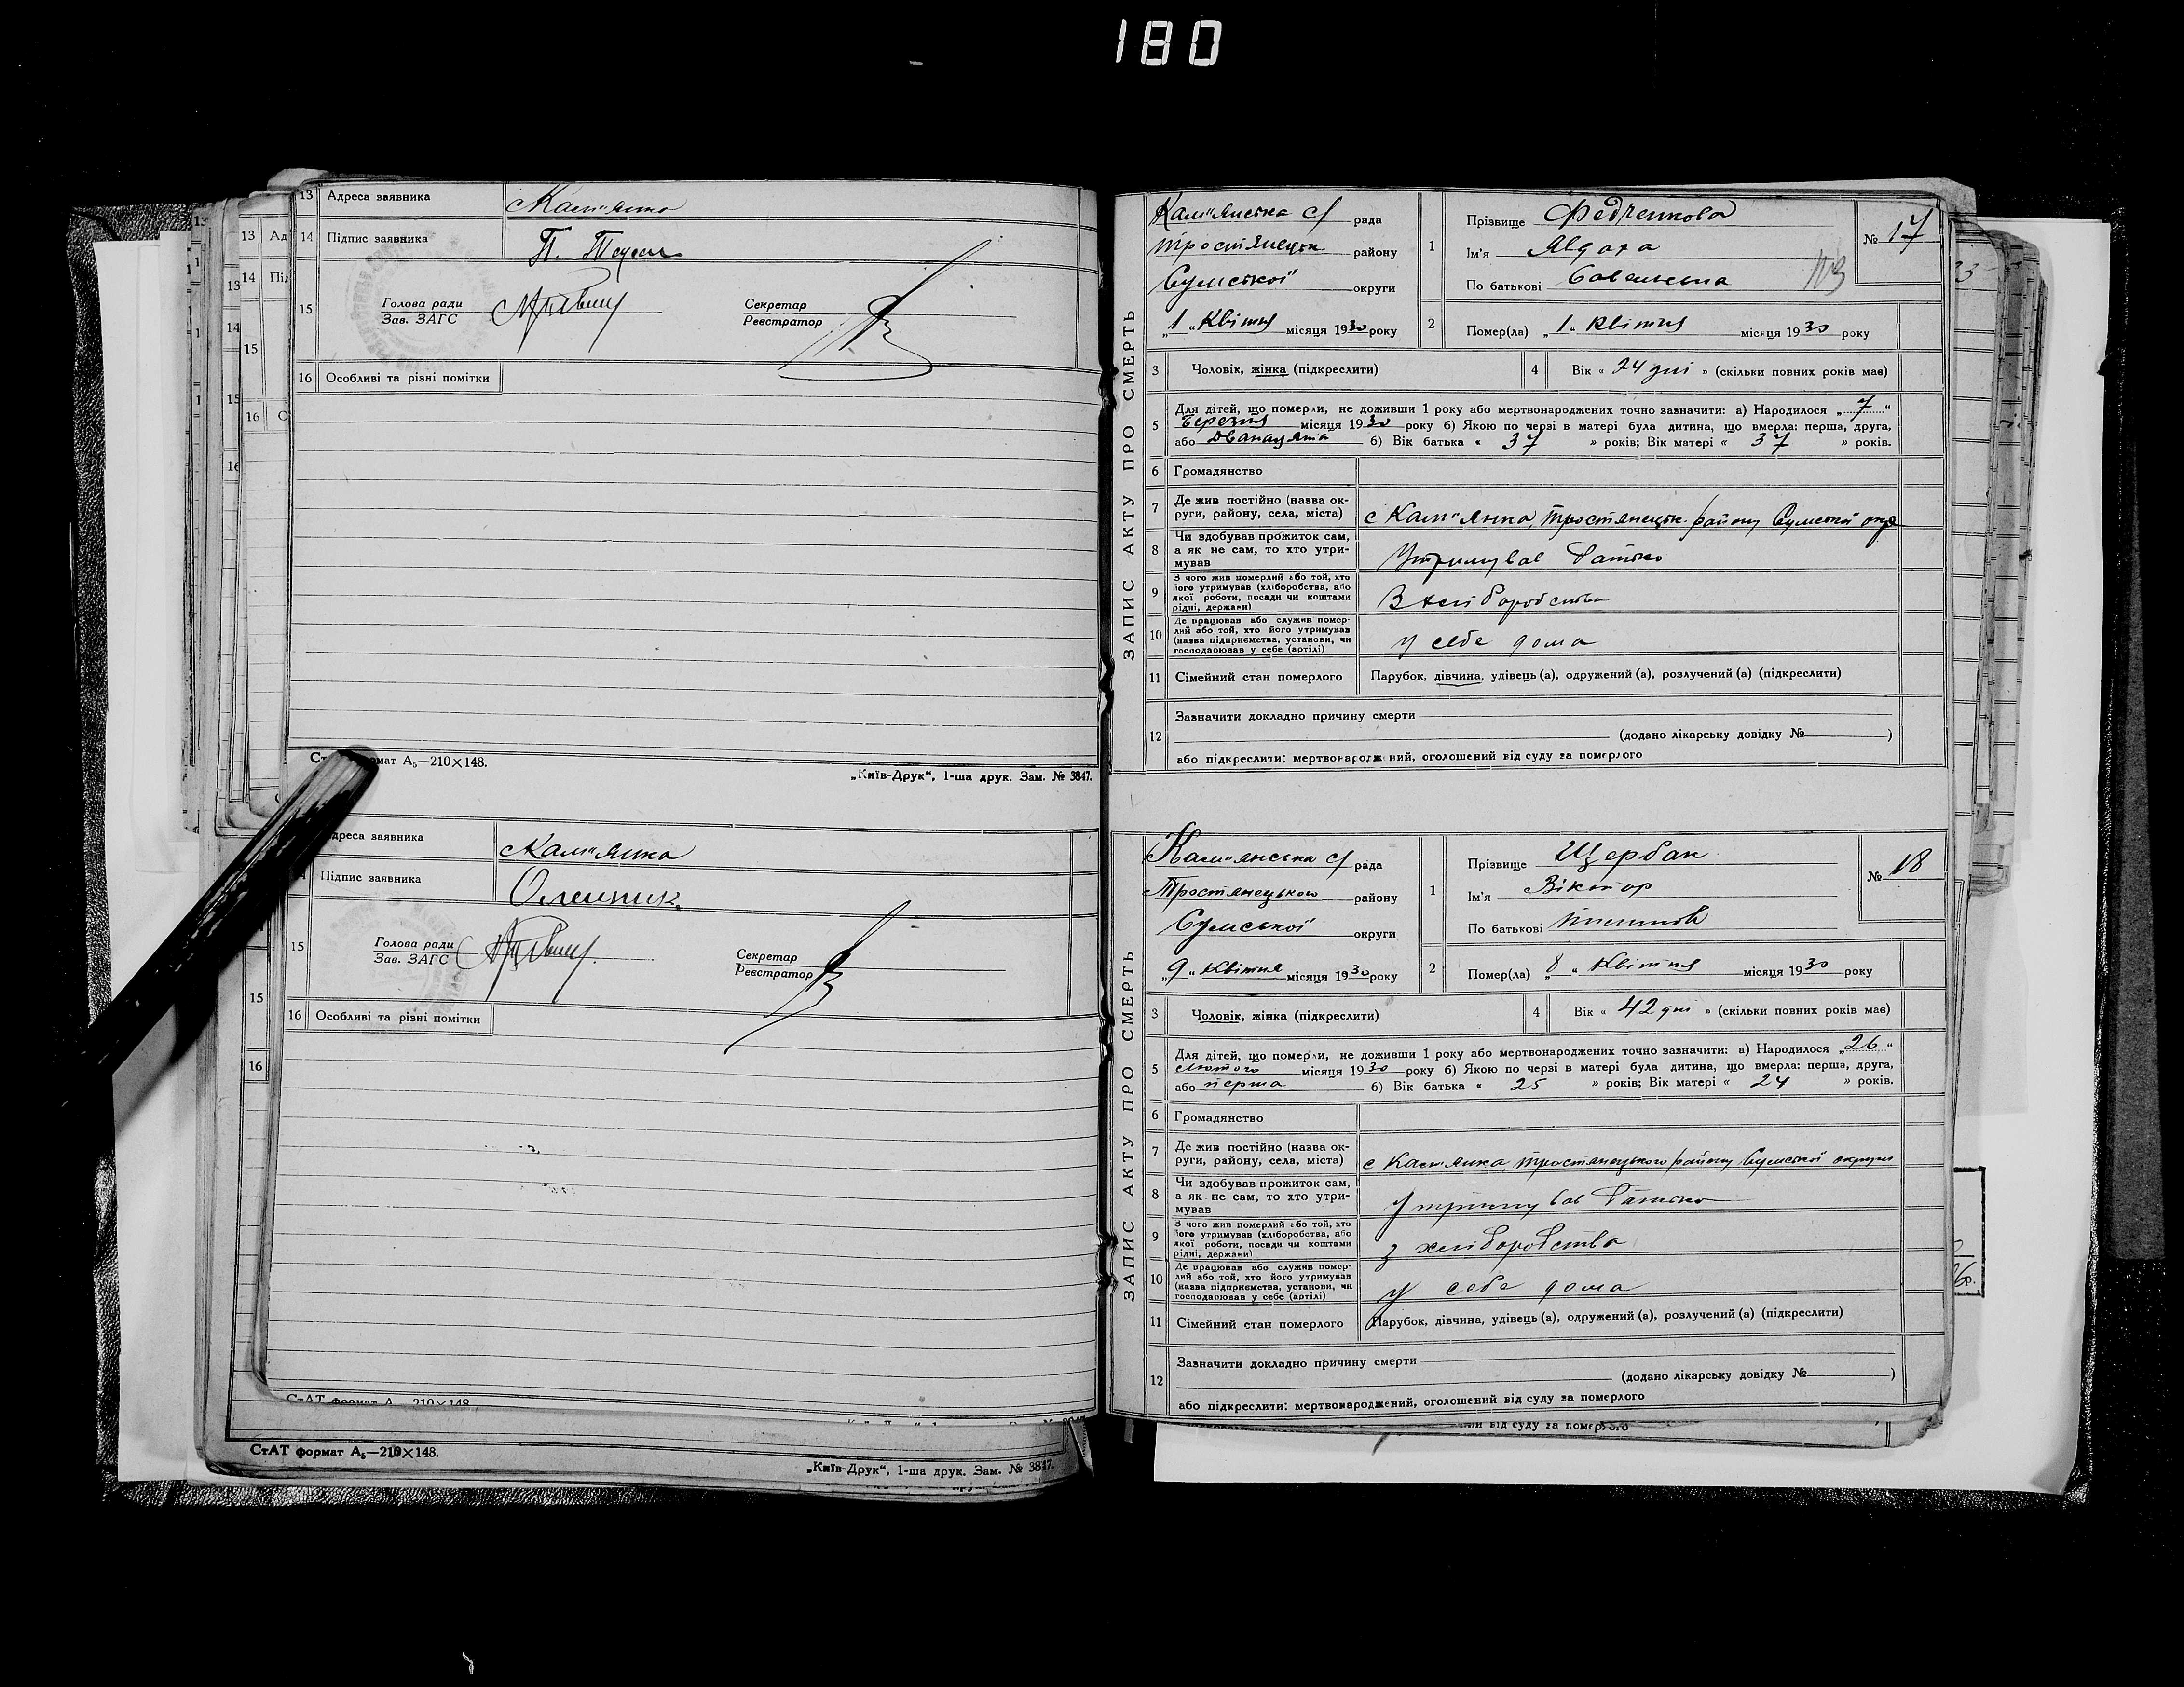 180
13 Адреса заявника Кам"янка
14 Підпис заявника П.
15 Голова ради
Зав. ЗАГС
Секретар
Реєстратор
16 Особливі та різні помітки
формат А5—210×148.
„Київ-Друк“, 1-ша друк. Зам. № 3847.
Адреса заявника Кам"янка
Підпис заявника Олейник
15 Голова ради
Зав. ЗАГС
Секретар
Реєстратор
16 Особливі та різні помітки
СтАТ формат А 210×148
СтАТ формат А5—210×148.
„Київ-Друк“, 1-ша друк. Зам. № 3847.
ЗАПИС АКТУ ПРО СМЕРТЬ
Кам"янська с/ рада
Тростянецьк району
Сумської округи
„1“ Квітня місяця 1930 року
1 Прізвище Федченкова
Ім'я Явдоха
По батькові Савельевна
№ 17
2 Помер(ла) „1“ Квітня місяця 1930 року
3 Чоловік, жінка (підкреслити)
4 Вік « 24 дні » (скільки повних років має)
5 Для дітей, що померли, не доживши 1 року або мертвонароджених точно зазначити: а) Народилося „7“
Березня місяця 1930 року б) Якою по черзі в матері була дитина, що вмерла: перша, друга,
або дванацята б) Вік батька « 37 » років; Вік матері « 37 » років.
6 Громадянство
7 Де жив постійно (назва округи, району, села, міста) с Кам"янка, Тростянецьк. району Сумської окр
8 Чи здобував прожиток сам, а як не сам, то хто утримував Утримував батько
9 З чого жив померлий або той, хто його утримував (хліборобства, або якої роботи, посади чи коштами рідні, держави) З хліборобства
10 Де працював або служив померлий або той, хто його утримував (назва підприємства, установи, чи господарював у себе (артілі) у себе дома
11 Сімейний стан померлого Парубок, дівчина, удівець (а), одружений (а), розлучений (а) (підкреслити)
12 Зазначити докладно причину смерти
(додано лікарську довідку № )
або підкреслити: мертвонароджений, оголошений від суду за померлого
ЗАПИС АКТУ ПРО СМЕРТЬ
Кам"янська с/ рада
Тростянецького району
Сумської округи
„9“ Квітня місяця 1930 року
1 Прізвище Щербак
Ім'я Віктор
По батькові
№ 18
2 Помер(ла) „8“ Квітня місяця 1930 року
3 Чоловік, жінка (підкреслити)
4 Вік « 42 дні » (скільки повних років має)
5 Для дітей, що померли, не доживши 1 року або мертвонароджених точно зазначити: а) Народилося „26“
лютого місяця 1930 року б) Якою по черзі в матері була дитина, що вмерла: перша, друга,
або перша б) Вік батька « 25 » років; Вік матері « 24 » років.
6 Громадянство
7 Де жив постійно (назва округи, району, села, міста) с Кам"янка Тростянецького району Сумської округи
8 Чи здобував прожиток сам, а як не сам, то хто утримував Утримував батько
9 З чого жив померлий або той, хто його утримував (хліборобства, або якої роботи, посади чи коштами рідні, держави) з хліборобства
10 Де працював або служив померлий або той, хто його утримував (назва підприємства, установи, чи господарював у себе (артілі) у себе дома
11 Сімейний стан померлого Парубок, дівчина, удівець (а), одружений (а), розлучений (а) (підкреслити)
12 Зазначити докладно причину смерти
(додано лікарську довідку № )
або підкреслити: мертвонароджений, оголошений від суду за померлого